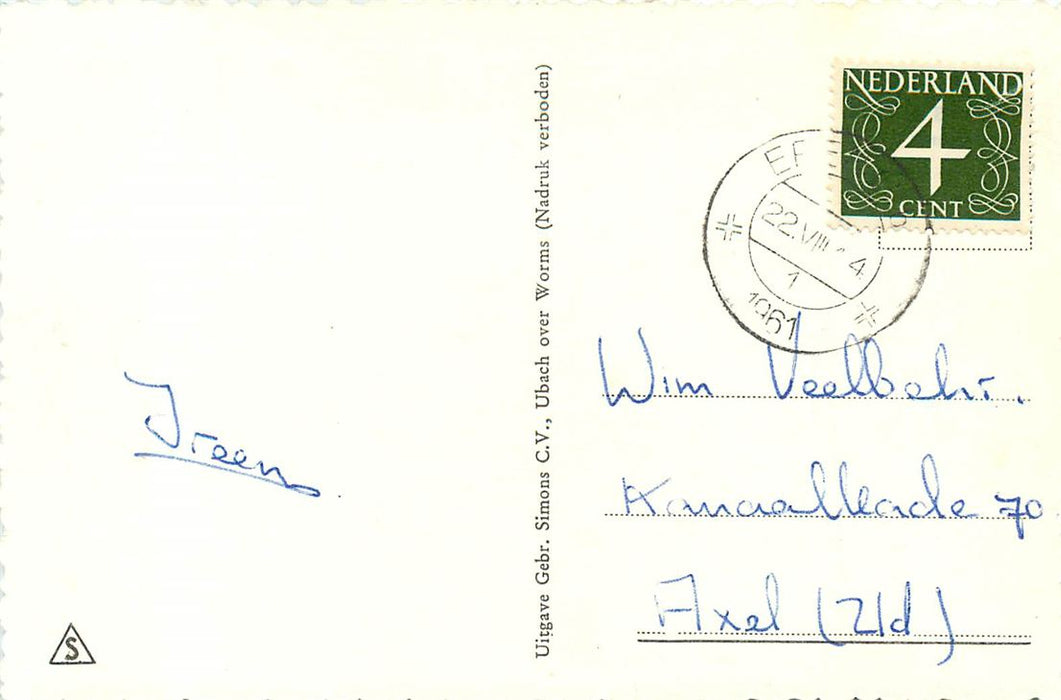 NEDERLAND
4
CENT
22.VIII 14
1
1961
Uitgave Gebr. Simons C.V., Ubach over Worms (Nadruk verboden)
Wim
Kanaalkade 70
Axel (Zld)
Ireen
S.